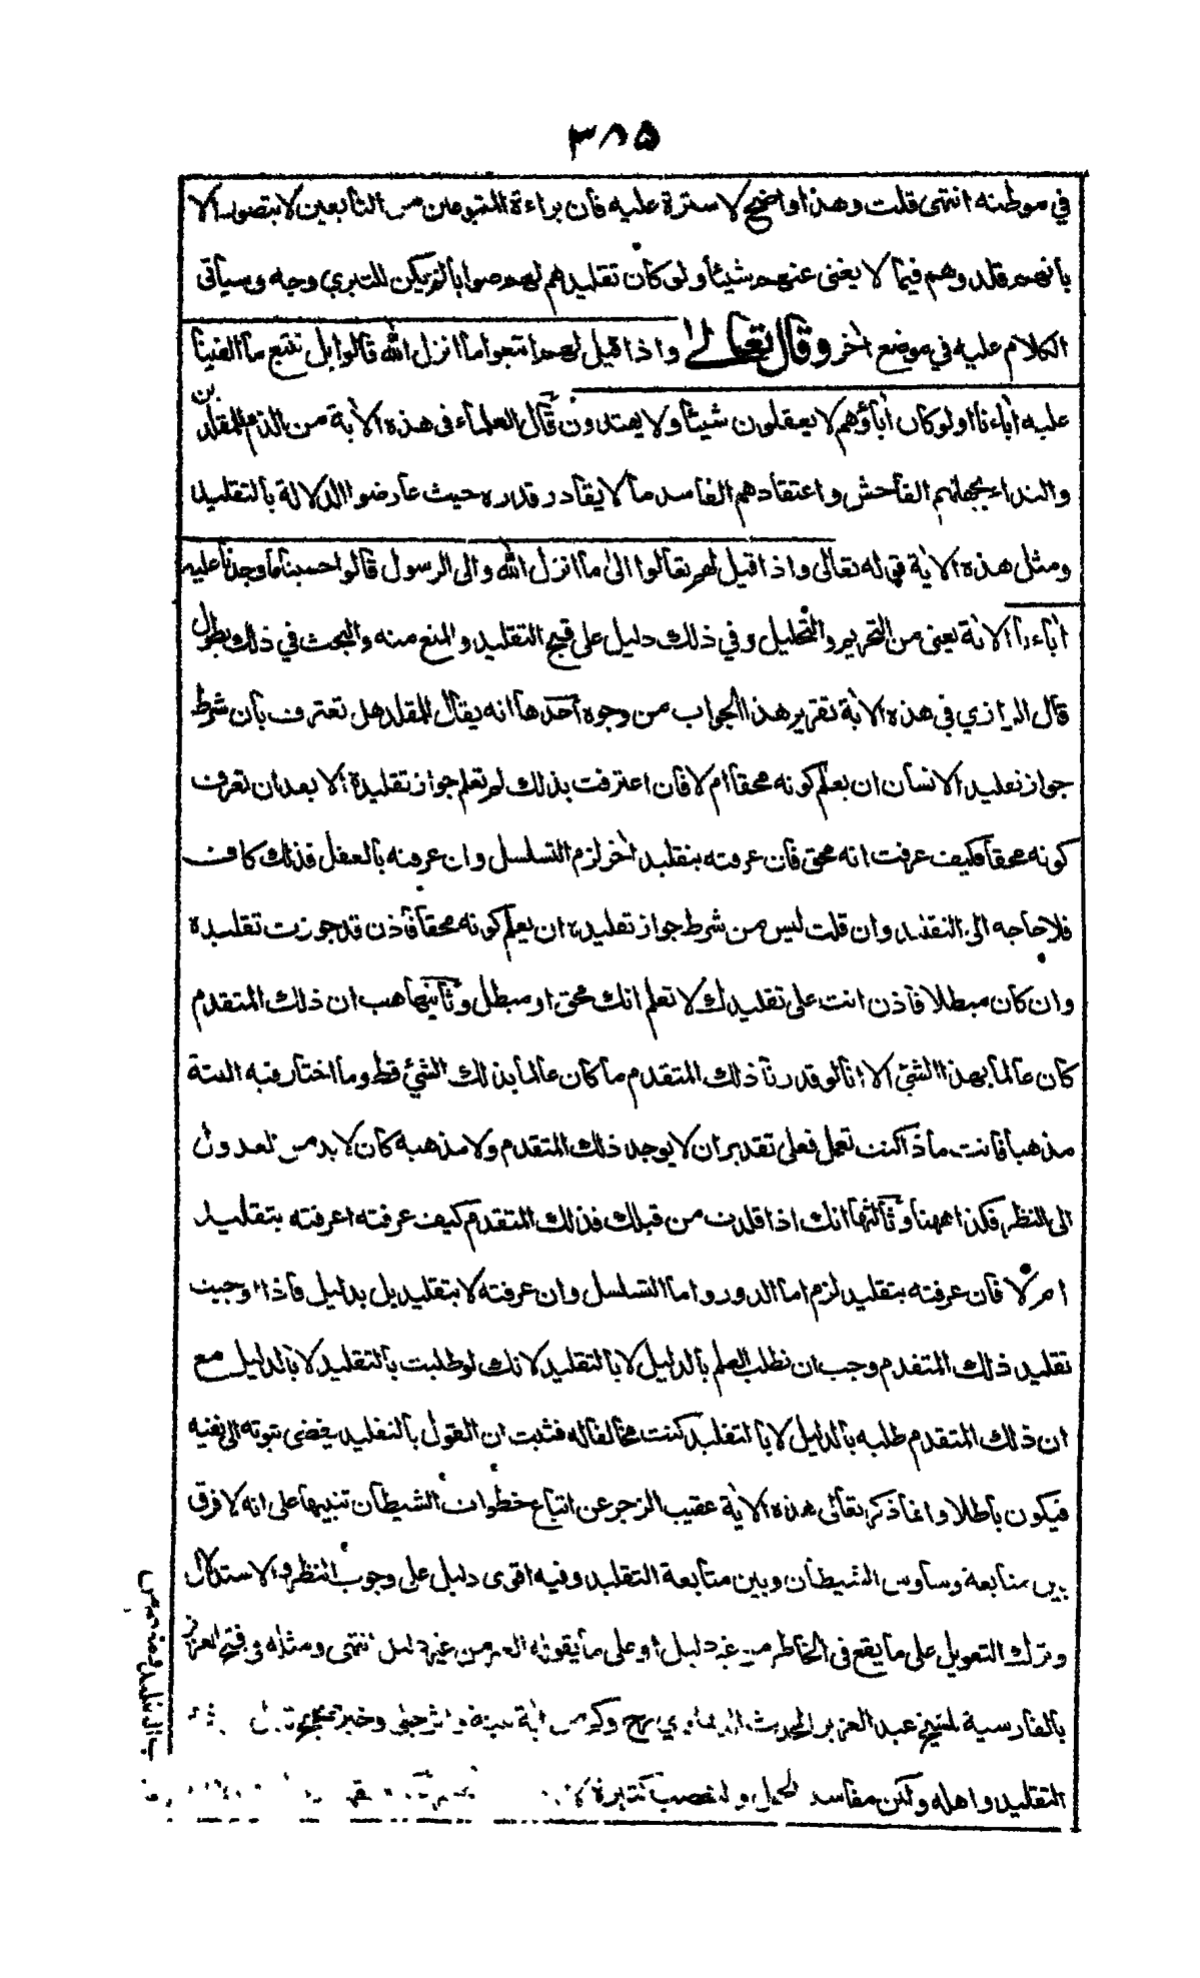 ٣٨٥
في موطنه انتهى قلت وهذا واضح لا سترة عليه فان براءة المتبوعين من التابعين لا يتصور الا
بانهم قلدوهم فيما لا يغنى عنهم شيئا ولو كان تقليدهم لهم صوابا لم يكن للتبري وجه وسيأتى
الكلام عليه في موضع اخر وقال تعالى واذا قيل لهم اتبعوا ما انزل الله قالوا بل نتبع ما الفينا
عليه اباءنا اولو كان اباؤهم لا يعقلون شيئا ولا يهتدون قال العلماء في هذه الاية من الذم للمقلدين
والنداء بجهلهم الفاحش واعتقادهم الفاسد ما لا يقادر قدره حيث عارضوا الدلالة بالتقليد
ومثل هذه الاية قوله تعالى واذا قيل لهم تعالوا الى ما انزل الله والى الرسول قالوا حسبنا ما وجدنا عليه
اباءنا الاية يعنى من التحريم والتحليل وفي ذلك دليل على قبح التقليد والمنع منه والبحث في ذلك يطول
قال الرازي في هذه الاية تقرير هذا الجواب من وجوه احدها انه يقال للمقلد هل تعترف بان شرط
جواز تقليد الانسان ان يعلم كونه محقا ام لا فان اعترفت بذلك لم تعلم جواز تقليده الا بعد ان تعرف
كونه محقا فكيف عرفت انه محق فان عرفته بتقليد اخر لزم التسلسل وان عرفته بالعقل فذلك كاف
فلا حاجه الى التقليد وان قلت ليس من شرط جواز تقليده ان يعلم كونه محقا فاذن قد جوزت تقليده
وان كان مبطلا فاذن انت على تقليدك لا تعلم انك محق او مبطل وثانيها هب ان ذلك المتقدم
كان عالما بهذا الشئ الا انا لو قدرنا ذلك المتقدم ما كان عالما بذلك الشئ قط وما اختار فيه البتة
مذهبا فانت ماذا كنت تعمل فعلى تقدير ان لا يوجد ذلك المتقدم ولا مذهبه كان لا بد من العدول
الى النظر فكذا ههنا وثالثها انك اذا قلدت من قبلك فذلك المتقدم كيف عرفته اعرفته بتقليد
ام لا فان عرفته بتقليد لزم اما الدور واما التسلسل وان عرفته لا بتقليد بل بدليل فاذا اوجبت
تقليد ذلك المتقدم وجب ان نطلب العلم بالدليل لا بالتقليد لانك لو طلبت بالتقليد لا بالدليل مع
ان ذلك المتقدم طلبه بالدليل لا بالتقليد كنت مخالفا له فثبت ان القول بالتقليد يفضى ثبوته الى نفيه
فيكون باطلا وانما ذكر تعالى هذه الاية عقيب الزجر عن اتباع خطوات الشيطان تنبيها على انه لا فرق
بين متابعة وساوس الشيطان وبين متابعة التقليد وفيه اقوى دليل على وجوب النظر والاستدلال
وترك التعويل على ما يقع في الخاطر من غير دليل او على ما يقوله الغير من غير دليل انتهى ومثله في فتح العزيز
بالفارسية للشيخ عبد العزيز المحدث الدهلوي رح وكم من اية بينة واثر جلي وخبر صحيح
التقليد واهله ولكن مفاسد الجهل والتعصب كثيرة